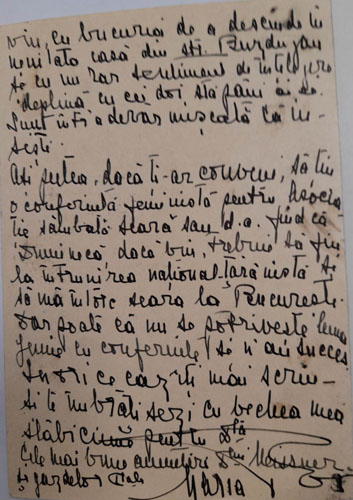 vin, cu bucuria de a descinde în
casă din str. Buzdugan
și cu un rar sentiment de înțelegere
deplină cu cei doi stăpâni ai
Sunt într'adevăr mișcată că în-
Aș putea, dacă ți-ar conveni, să țin
o conferință feministă pentru Asocia-
ție sâmbătă seară sau d.a. fiind că
Duminecă dacă vin, trebue să fiu
la întrunirea național-țărănistă și
să mă întorc seara la București.
Dar poate că nu se potrivește
cu conferințe și n'am succes
In ori ce caz ți mai scriu
și te îmbrățișez cu vechea mea
slăbiciune pentru D-ta
Cele mai bune amintiri D-lui Meissner
și gazdelor tale
Maria